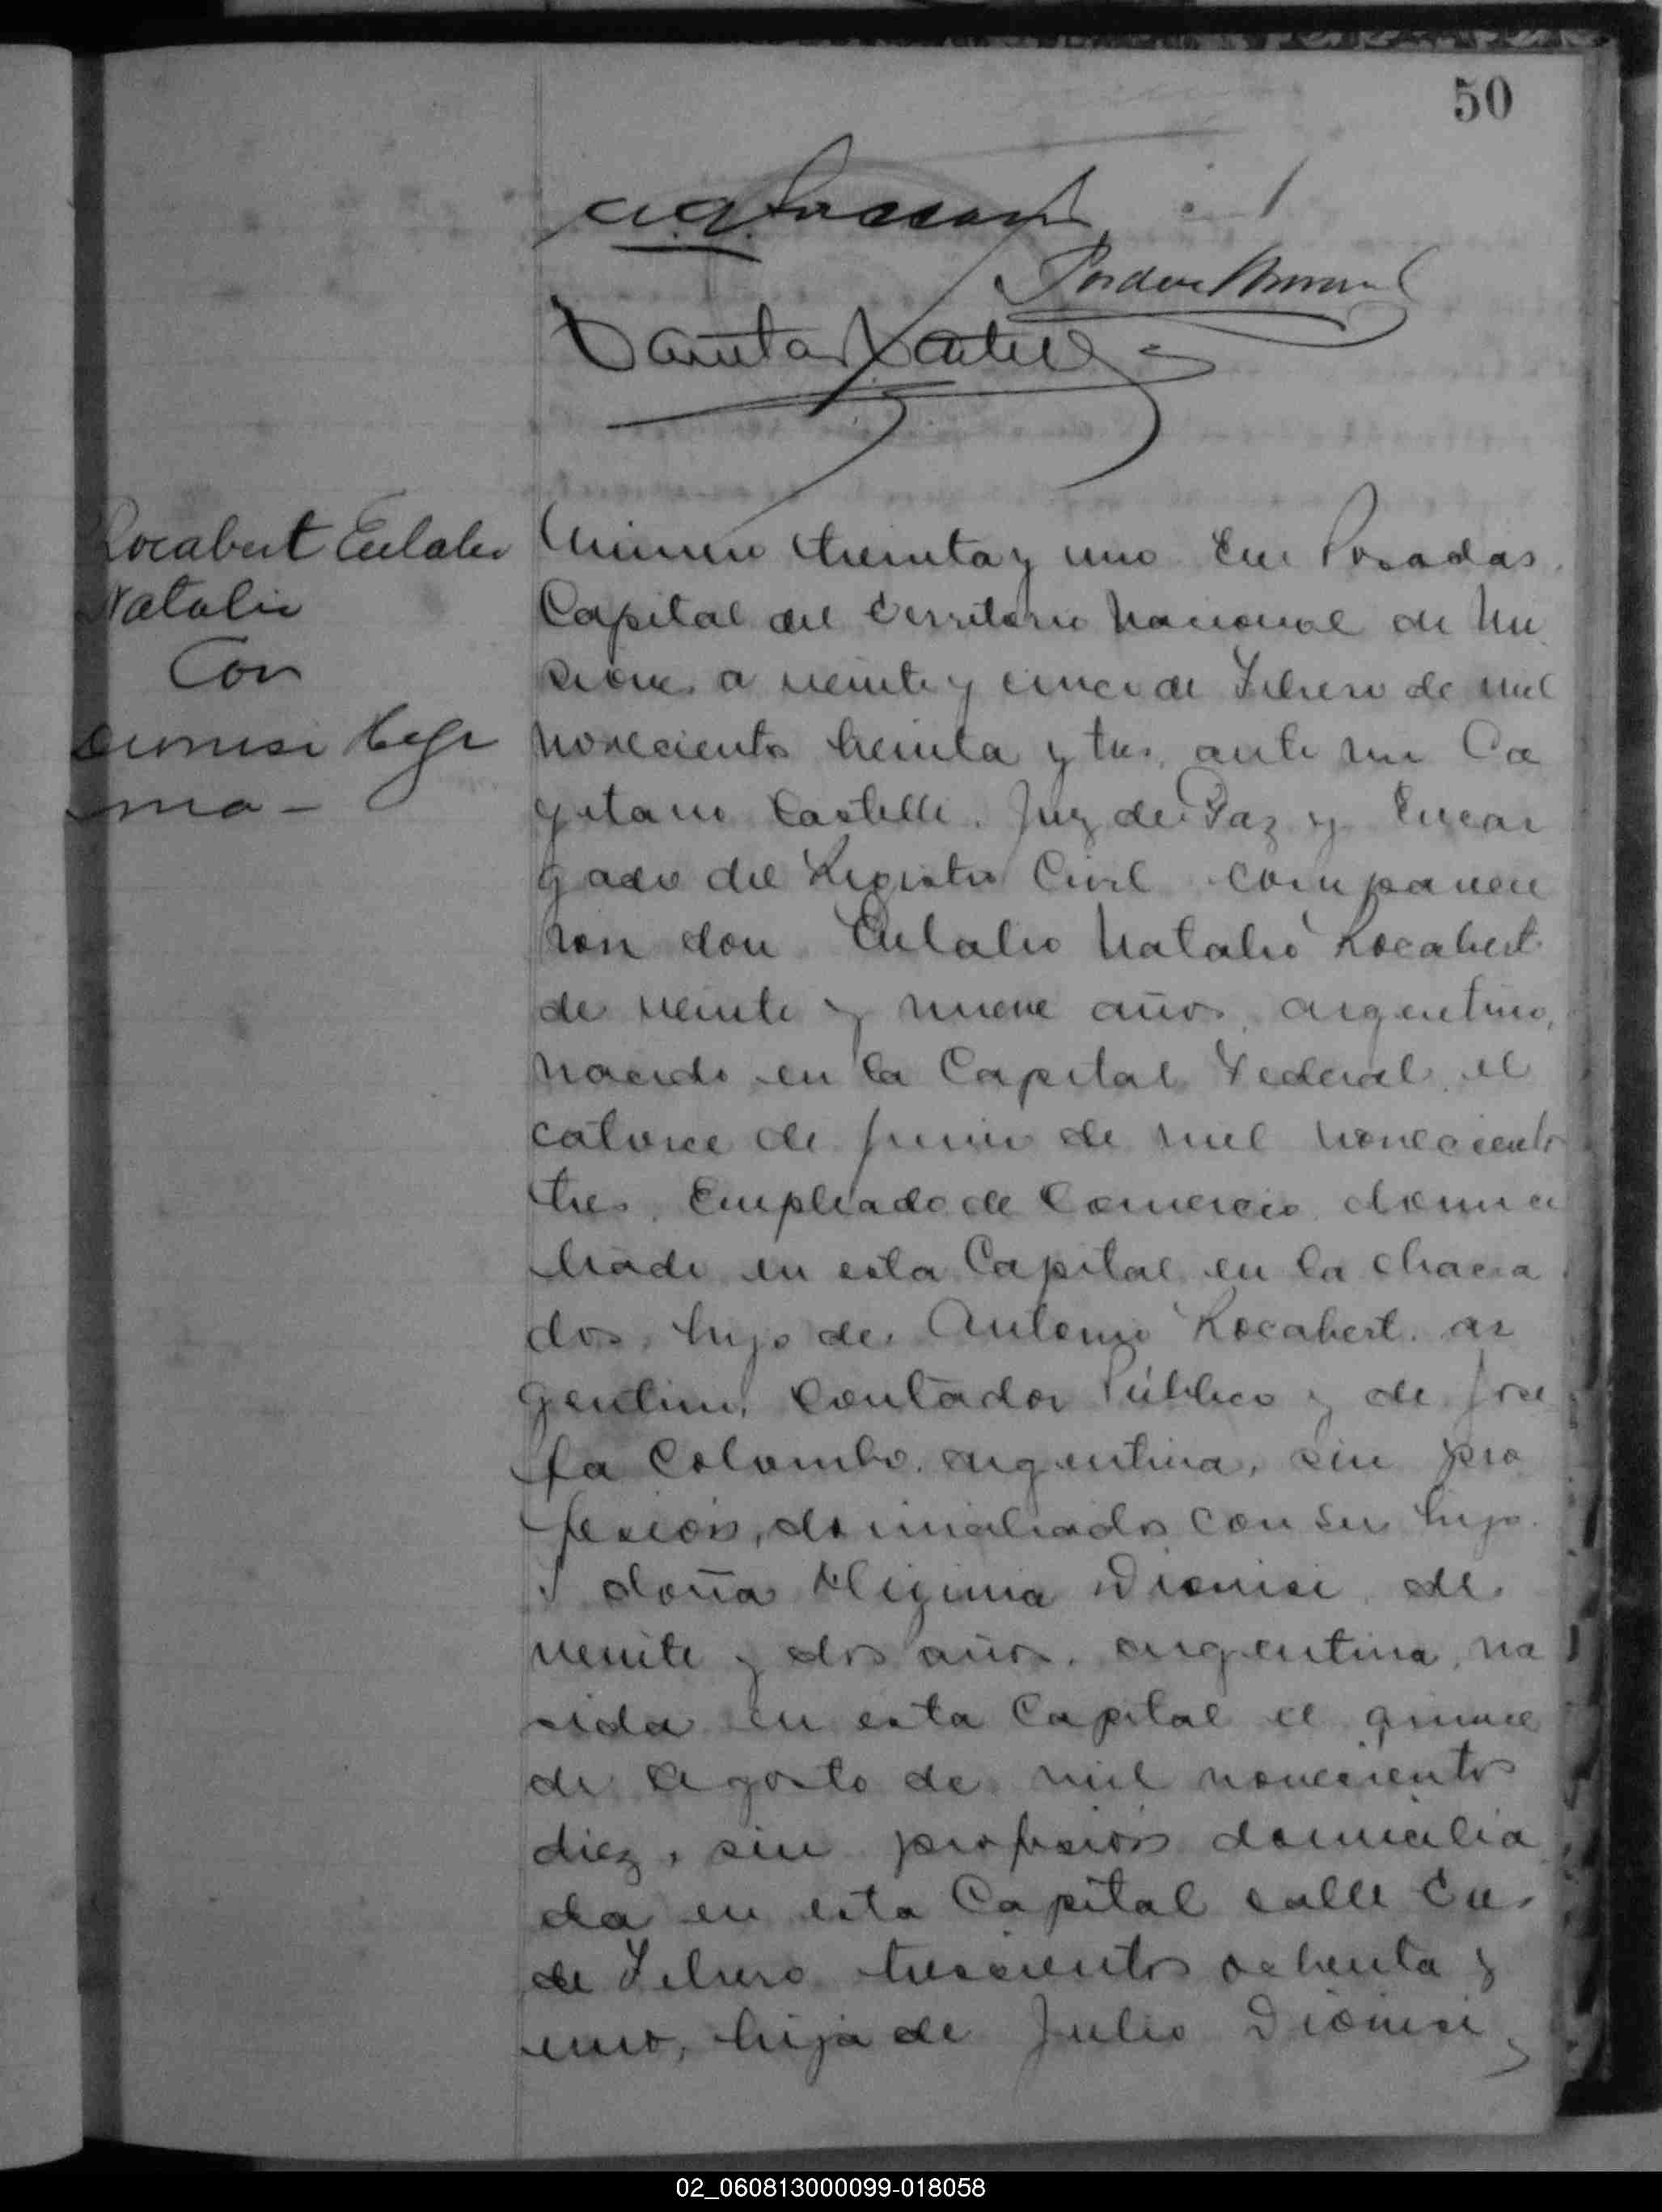 50
Rocabert Eulalio
Natalio
Con
Dionisi Higi
nia -
Número treinta y uno En Posadas
Capital del Territorio Nacional de Mi
siones a veinte y cinco de Febrero de mil
novecientos treinta y tres, ante mi Ca
yetano Castelli, Juez de Paz y Encar
gado del Registro Civil comparecie
ron don Eulalio Natalio Rocabert
de veinte y nueve años, argentino,
nacido en la Capital Federal, el
catorce de Junio de mil novecientos
tres, Empleado de Comercio, domici
liado en esta Capital en la chacra
dos, hijo de Antonio Rocabert, ar
gentino, Contador Público y de Jose
fa Colombo, argentina, sin pro
fesión, domiciliados con su hijo.
Y doña Higinia Dionisi, de
veinte y dos años, argentina, na
sida en esta Capital el quince
de Agosto de mil novecientos
diez, sin profesión domicilia
da en esta Capital calle
de Febrero trescientos ochenta y
uno, hija de Julio Dionisi,
02_060813000099-018058